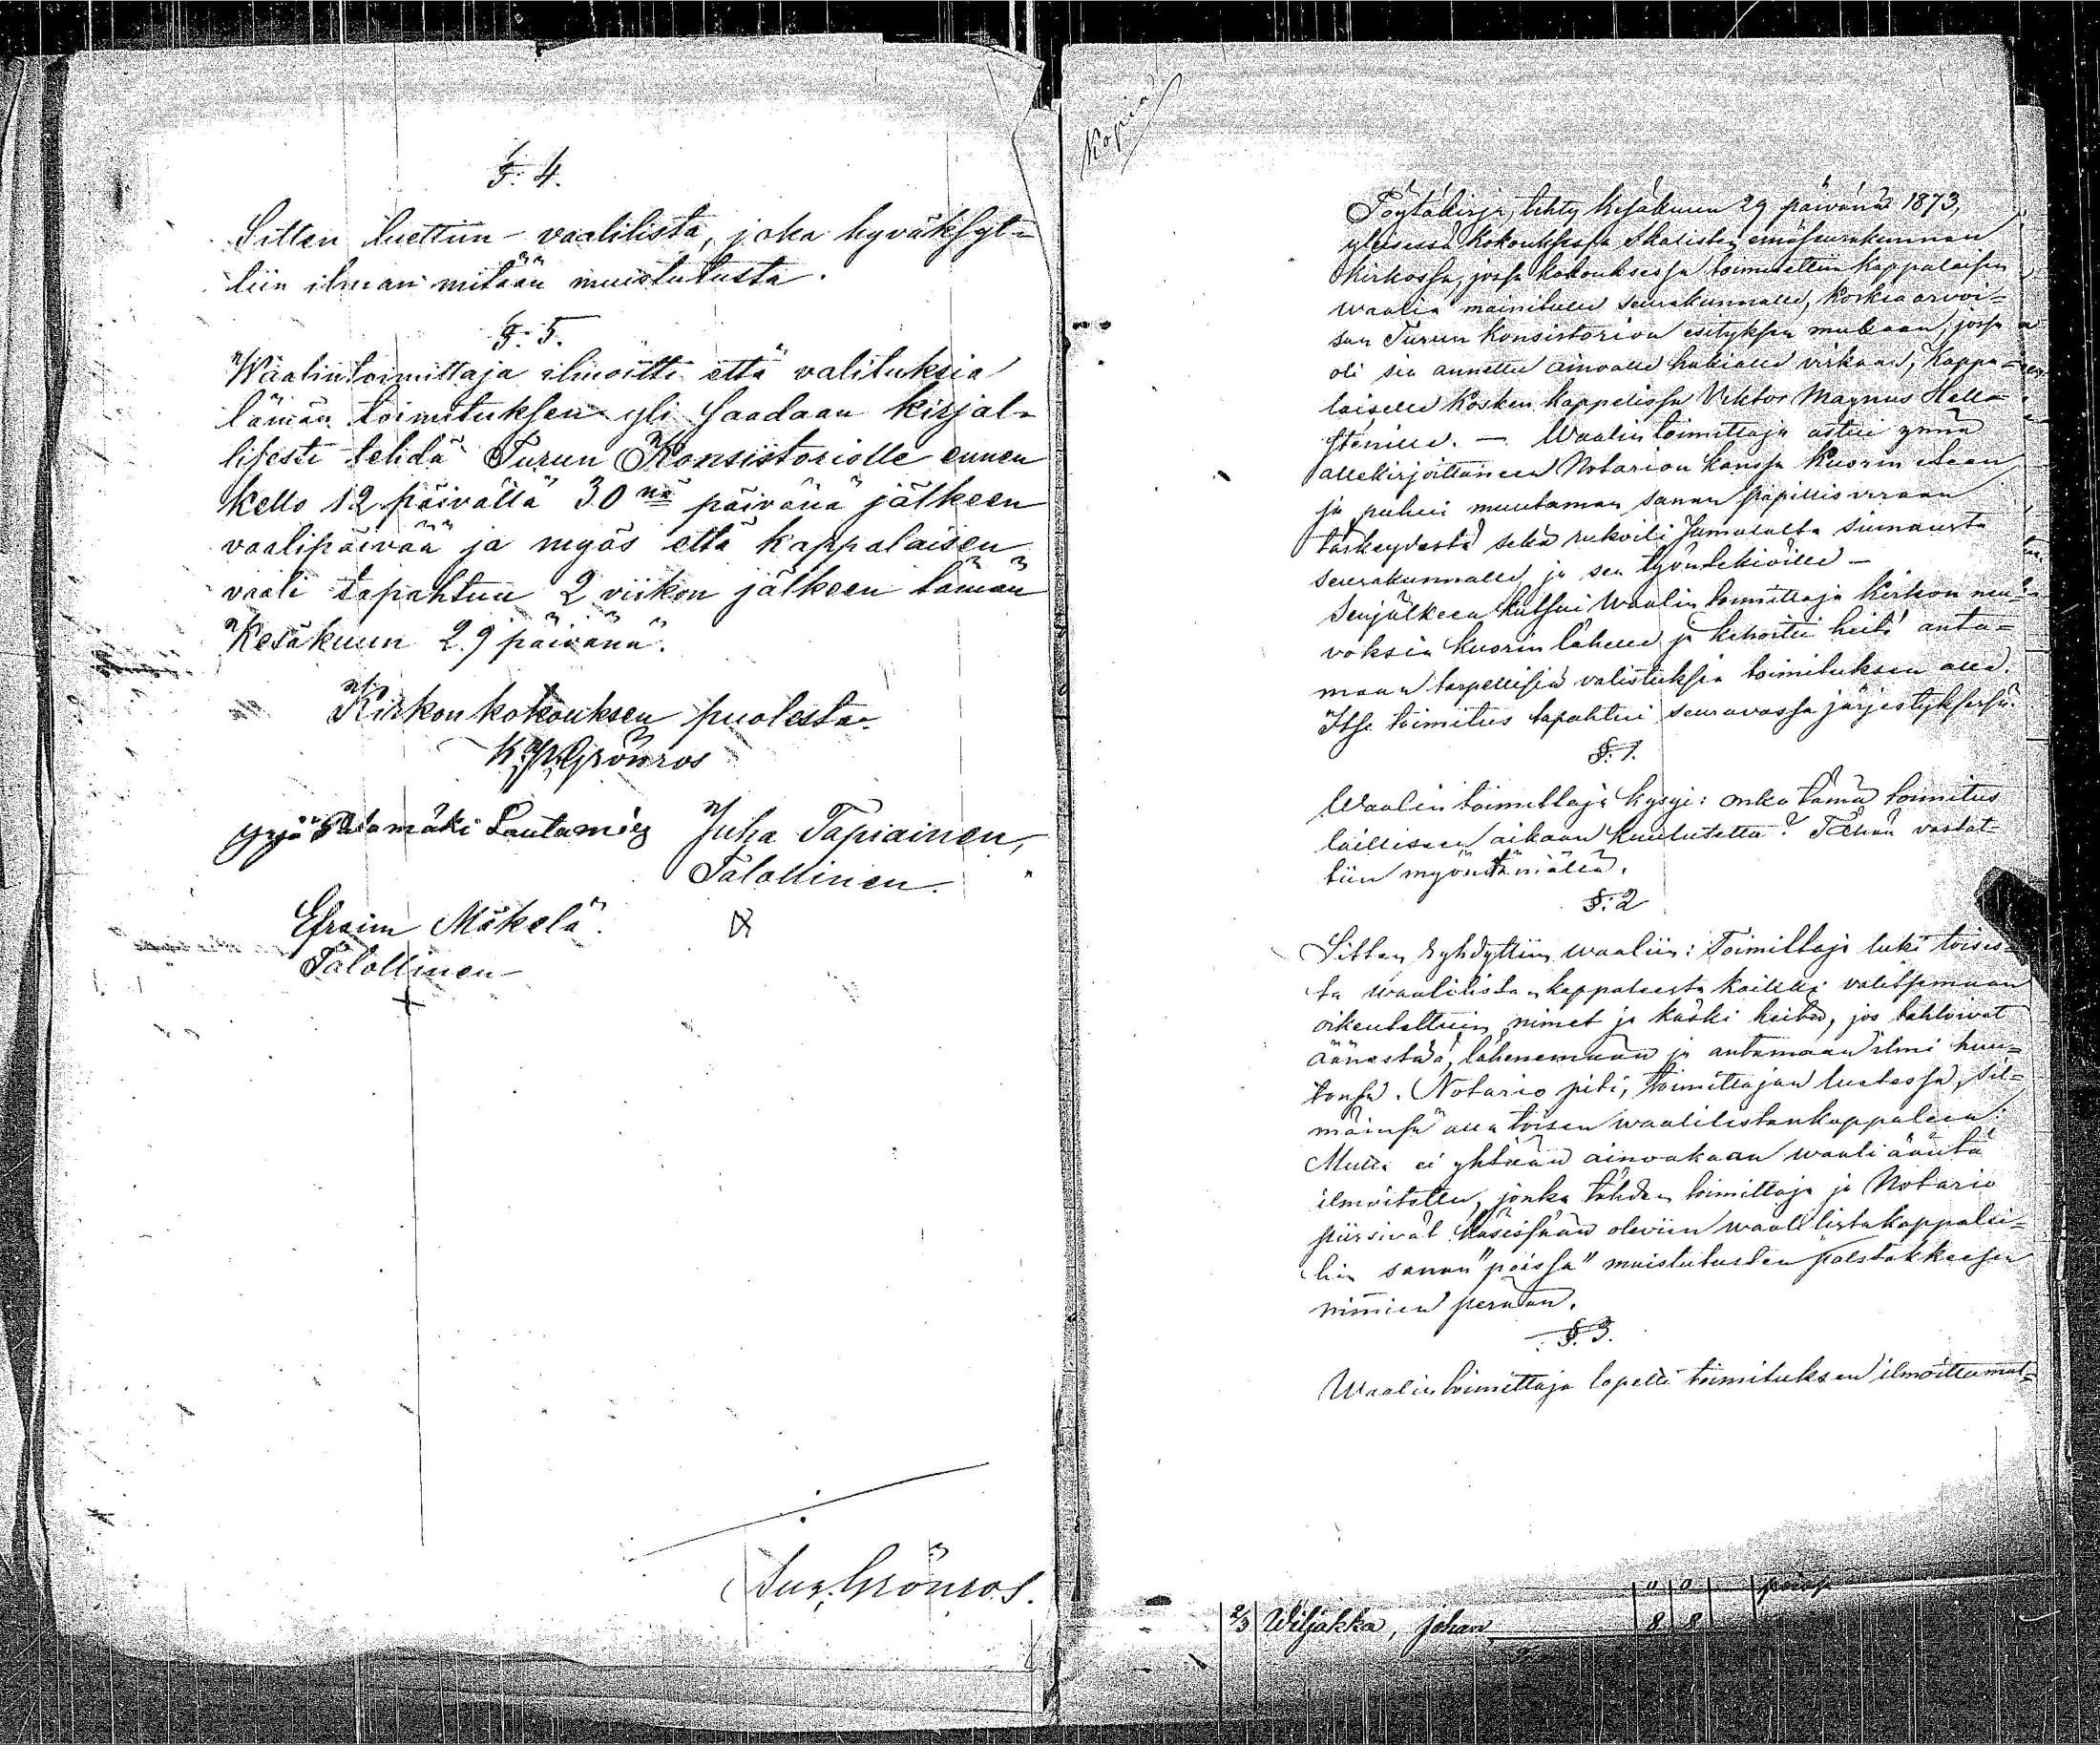 §. 4.
Sitten luettiin vaalilista, joka hyväksyt-
tiin ilman mitään muistutusta.
§. 5.
Waalintoimittaja ilmoitti että valituksia
tämän toimituksen yli saadaan kirjal-
lisesti tehdä Turun Konsistoriolle ennen
kello 12 päivällä 30nä päivänä jälkeen
vaalipäivää ja myös että kappalaisen
vaali tapahtuu 2 viikon jälkeen tämän
Kesäkuun 29 päivänä.
Kirkonkokouksen puolesta
Grönros
Yrjö Lautamies Juha Tapiainen,
Talollinen.
Efraim Mäkelä.
Talollinen
Grönros.
Kopia
Pöytäkirja, tehty kesäkuun 29 päivänä 1873,
yleisessä kokouksessa Ikalisten emäseurakunnan
kirkossa, jossa kokouksessa toimitettiin kappalaisen
waalia mainitulle seurakunnalle, korkea arvoi-
san Turun Konsistorion esityksen mukaan, jossa
oli sia annettu ainoalle hakialle virkaan, Kappa-
laiselle Kosken kappelissa Viktor Magnus Hell-
sténille. — Waalin toimittaja astui ynnä
allekirjoittaneen Notarion kanssa kuorin eteen
ja puhui muutaman sanan papillisviraan
tärkeydestä sekä rukoili Jumalalta siunausta
seurakunnalle ja sen työntekiöille —
Senjälkeen kutsui Waalin toimittaja kirkon neu-
voksia kuorin lähelle ja kehoitti heitä anta-
maan tarpellisia valistuksia toimituksen alla.
Itse toimitus tapahtui seuravassa järjestyksessä.
§. 1.
Waalin toimittaja kysyi: onko tämä toimitus
lailliseen aikaan kuulutettu? Tähän vastat-
tiin myöntämällä.
§. 2
Sitten ryhdyttiin waaliin: Toimittaja luki toises-
ta waalilista-kappaleesta kaikki valitsemaan
oikeutettuin nimet ja käski heitä, jos tahtoivat
äänestää, lähenemään ja antamaan ilmi huu-
tonsa. Notario piti, toimittajan luetessa, sil-
mäinsä alla toisen waalilistankappaleen.
Mutta ei yhtään ainoakaan waali ääntä
ilmoitettu, jonka tähden toimittaja ja Notario
piirsivät käsissään oleviin waalilistakappalei-
hin sanan "poissa" muistutusten palstakkeesen
nimien perään.
§. 3.
Waalin toimittaja lopetti toimituksen ilmoittamal-
" " poissa
2/3 Wiljakka, Johan 8 8